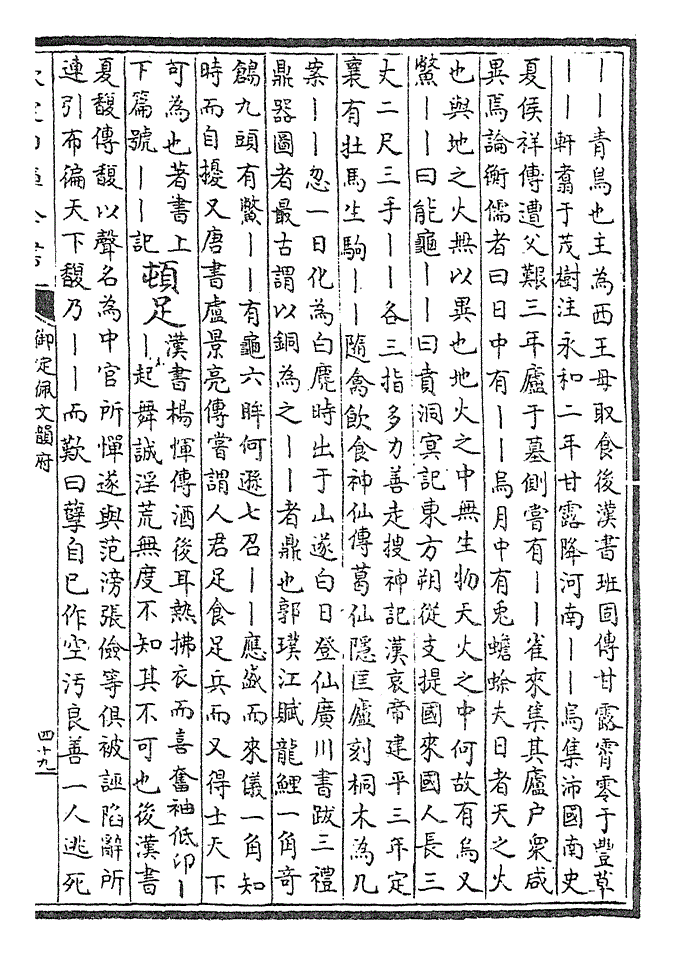 ——青鳥也主為西王母取食後漢書班固傳甘露宵零于豐草
——軒翥于茂樹注永和二年甘露降河南——烏集沛國南史
夏侯祥傳遭父艱三年廬于墓側嘗有——雀來集其廬户衆咸
異焉論衡儒者曰日中有——烏月中有兎蟾蜍夫日者天之火
也與地之火無以異也地火之中無生物天火之中何故有烏又
鱉——曰能龜——曰賁洞冥記東方朔從支提國來國人長三
丈二尺三手——各三指多力善走搜神記漢哀帝建平三年定
襄有牡馬生駒——隨禽飲食神仙傳葛仙隱匡廬刻桐木為几
案——忽一日化為白麂時出于山遂白日登仙廣川書跋三禮
鼎器圖者最古謂以銅為之——者鼎也郭璞江賦龍鯉一角奇
鶬九頭有鱉——有龜六眸何遜七召——應盛而來儀一角知
時而自擾又唐書盧景亮傳嘗謂人君足食足兵而又得士天下
可為也著書上
下篇號——記
頓足
漢書楊惲傳酒後耳熱拂衣而喜奮袖低卬—
—起舞誠淫荒無度不知其不可也後漢書
夏馥傳馥以聲名為中官所憚遂與范滂張儉等俱被誣陷辭所
連引布徧天下馥乃——而歎曰孽自已作空汚良善一人逃死
御定佩文韻府
四十九